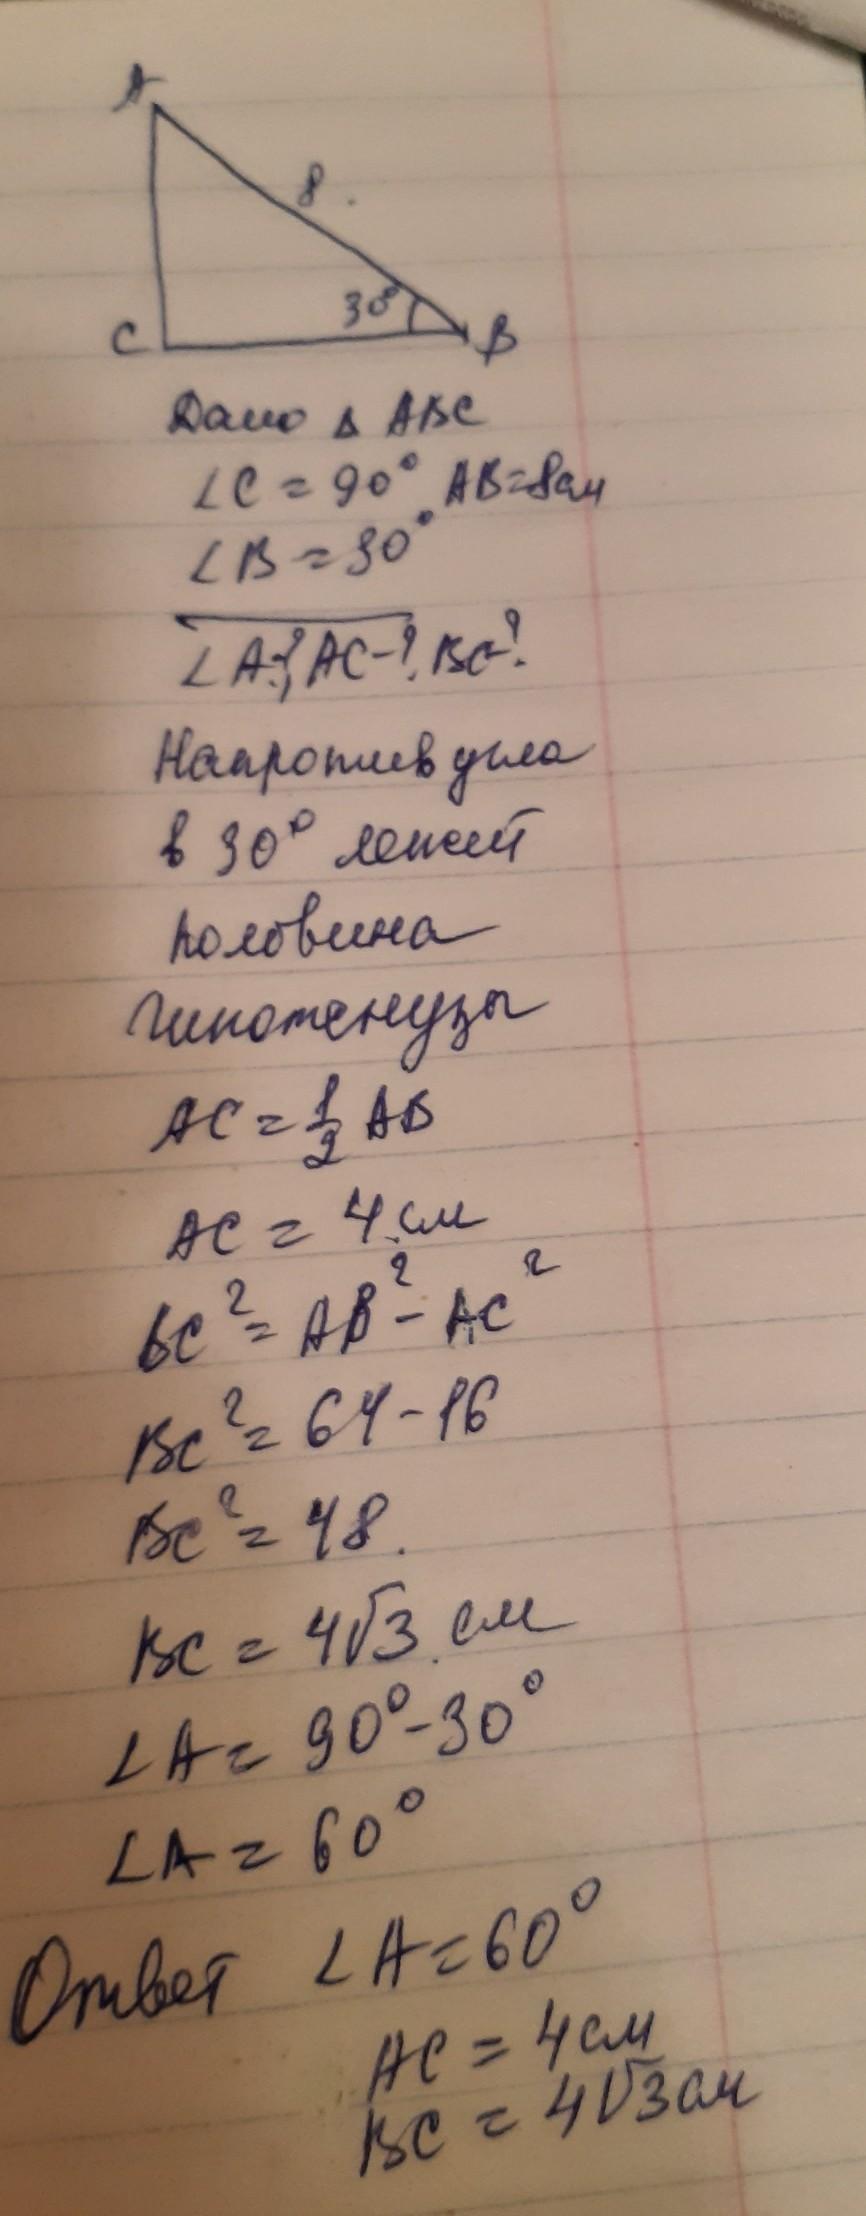 A
8.
30°
C
B
Дано Δ ABC
∠C = 90° AB=8см
∠B = 30°
∠A-?, AC-?, BC-?
Напротив угла
в 30° лежит
половина
гипотенузы
AC = 1/2 AB
AC = 4 см
BC² = AB² - AC²
BC² = 64 - 16
BC² = 48.
BC = 4√3 см
∠A = 90° - 30°
∠A = 60°
Ответ ∠A = 60°
AC = 4 см
BC = 4√3 см